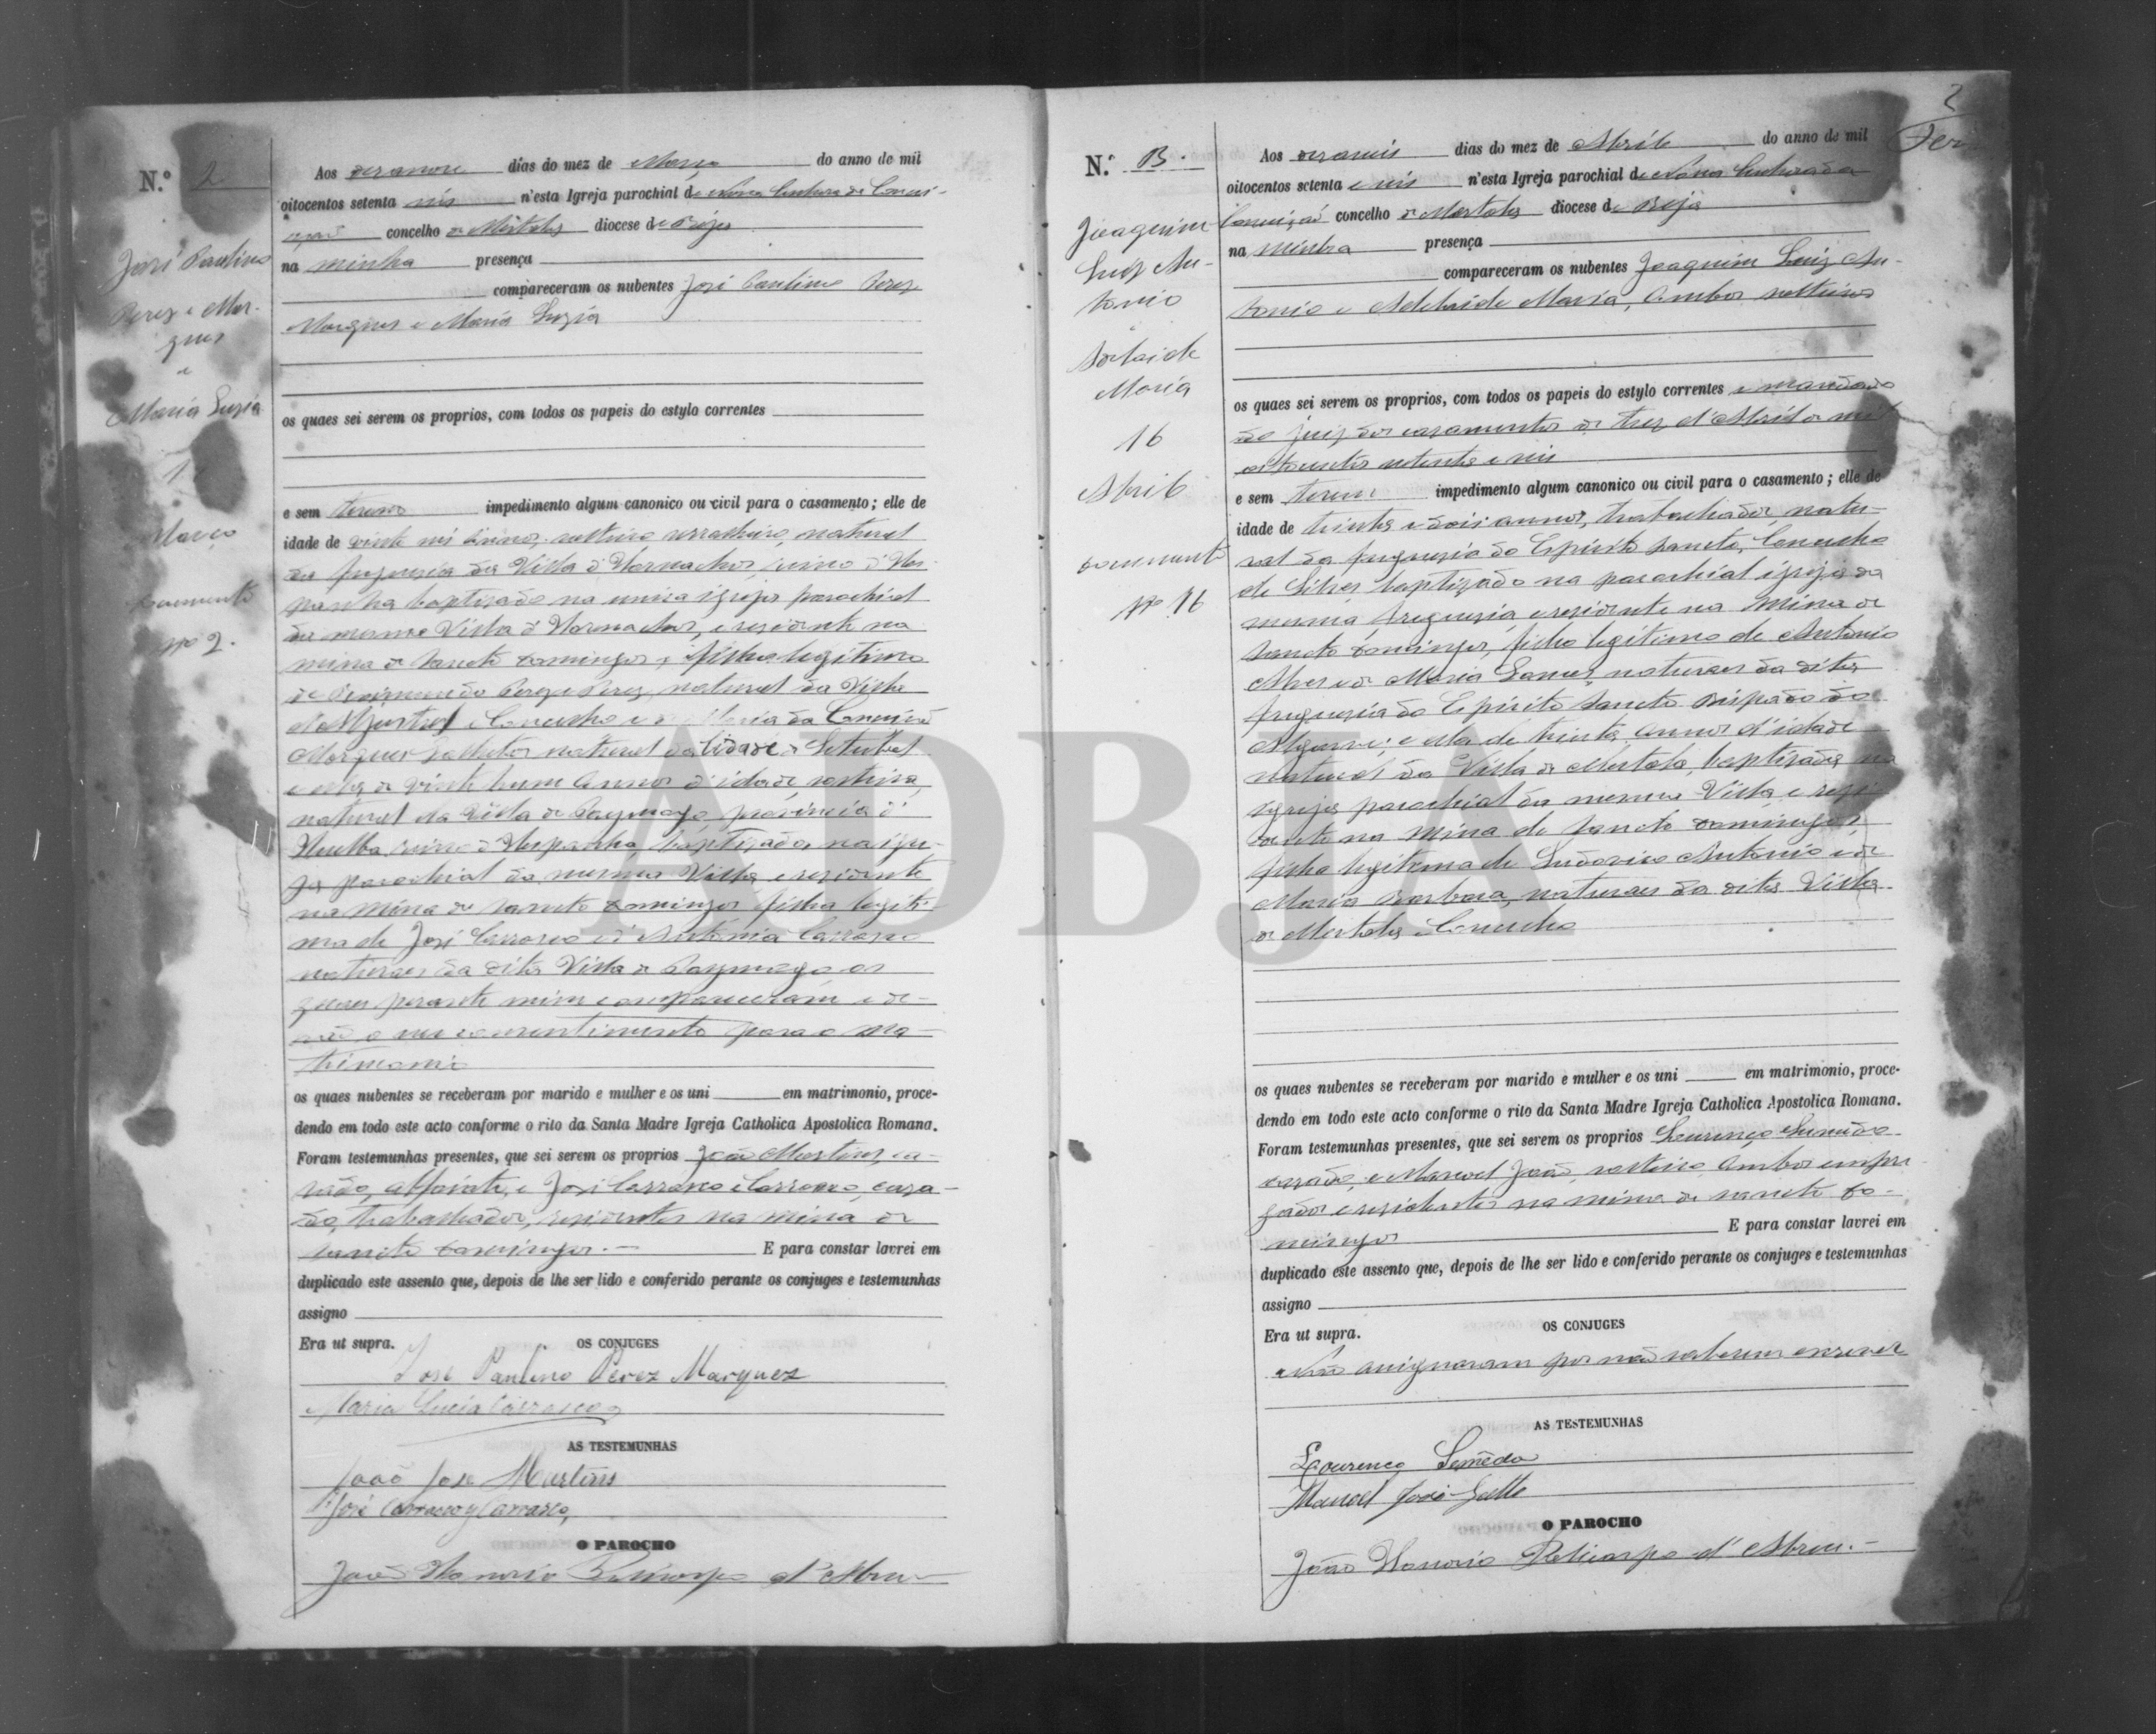 N.º 2
José Paulino
Perez e Mar-
ques
e
Maria Luzia
Março
documento
nº 2.
Aos desanove dias do mez de Março do anno de mil
oitocentos setenta seis n'esta Igreja parochial de Nossa Senhora da Concei-
ção concelho de Mertola diocese de Beja
na minha presença
compareceram os nubentes José Paulino Perez
Marques e Maria Luzia
os quaes sei serem os proprios, com todos os papeis do estylo correntes
e sem terem impedimento algum canonico ou civil para o casamento; elle de
idade de vinte seis annos, solteiro serralheiro, natural
da freguezia da Villa d'Hornachos, reino d'Hes-
panha baptizado na unica igreja parochial
da mesma Villa d'Hornachos, e residente na
mina de Sancto Domingos, filho legitimo
de Raimundo Perez, natural da Villa
d'Aljustrel e Concelho e de Maria da Conceição
Marques natural da Cidade de Setubal
e ella de vinte hum annos d'idade, solteira,
natural da Villa de Paymogo provincia d'
Huelba, reino d'Hespanha, baptizada na igre-
ja parochial da mesma Villa, e residente
na mina de Sancto Domingos filha legiti-
ma de José Carrasco e d'Antonia Carrasco
naturaes da dita Villa de Paymogo os
quaes perante mim compareceram e de-
rão o seu consentimento para o ma-
trimonio
os quaes nubentes se receberam por marido e mulher e os uni em matrimonio, proce-
dendo em todo este acto conforme o rito da Santa Madre Igreja Catholica Apostolica Romana.
Foram testemunhas presentes, que sei serem os proprios João Martins, ca-
sado, alfaiate, e José Carrasco e Carrasco, casa-
do, trabalhador, residentes na mina de
Sancto Domingos.— E para constar lavrei em
duplicado este assento que, depois de lhe ser lido e conferido perante os conjuges e testemunhas
assigno
Era ut supra. OS CONJUGES
José Paulino Perez Marquez
Maria Lucia Carrasco
AS TESTEMUNHAS
João José Martins
José Carrasco y Carrasco
O PAROCHO
João Honorio Policarpo d'Abreu
2
N.º 3.
Joaquim
Luiz An-
tonio
e
Adelaide
Maria
16
Abril
documento
nº 16
Aos desaseis dias do mez de Abril do anno de mil
oitocentos setenta e seis n'esta Igreja parochial de Nossa Senhora da
Conceição concelho de Mertola diocese de Beja
na minha presença
compareceram os nubentes Joaquim Luiz An-
tonio e Adelaide Maria, ambos solteiros
os quaes sei serem os proprios, com todos os papeis do estylo correntes e mandado
do juiz dos casamentos de tres d'Abril de mil
oitocentos setenta e seis
e sem terem impedimento algum canonico ou civil para o casamento; elle de
idade de trinta e dois annos, trabalhador, natu-
ral da freguezia do Espirito Sancto, Concelho
de Silves baptizado na parochial igreja da
mesma freguezia, e residente na Mina de
Sancto Domingos, filho legitimo de Antonio
Alves e de Maria naturaes da dita
freguezia do Espirito Sancto Bispado do
Algarve; e ella de trinta annos d'idade
natural da Villa de Mertola, baptizada na
igreja parochial da mesma Villa e resi-
dente na mina de Sancto Domingos
filha legitima de Ludovico Antonio e de
Maria Barbara, naturaes da dita Villa
de Mertola e Concelho
os quaes nubentes se receberam por marido e mulher e os uni em matrimonio, proce-
dendo em todo este acto conforme o rito da Santa Madre Igreja Catholica Apostolica Romana.
Foram testemunhas presentes, que sei serem os proprios Lourenço Semedo
casado, e Manoel João, solteiro ambos empre-
gados e residentes na mina de Sancto Do-
mingos E para constar lavrei em
duplicado este assento que, depois de lhe ser lido e conferido perante os conjuges e testemunhas
assigno
Era ut supra. OS CONJUGES
Não assignaram por não saberem escrever
AS TESTEMUNHAS
Lourenço Semedo
Manoel José
O PAROCHO
João Honorio Policarpo d'Abreu.—
ADBJA